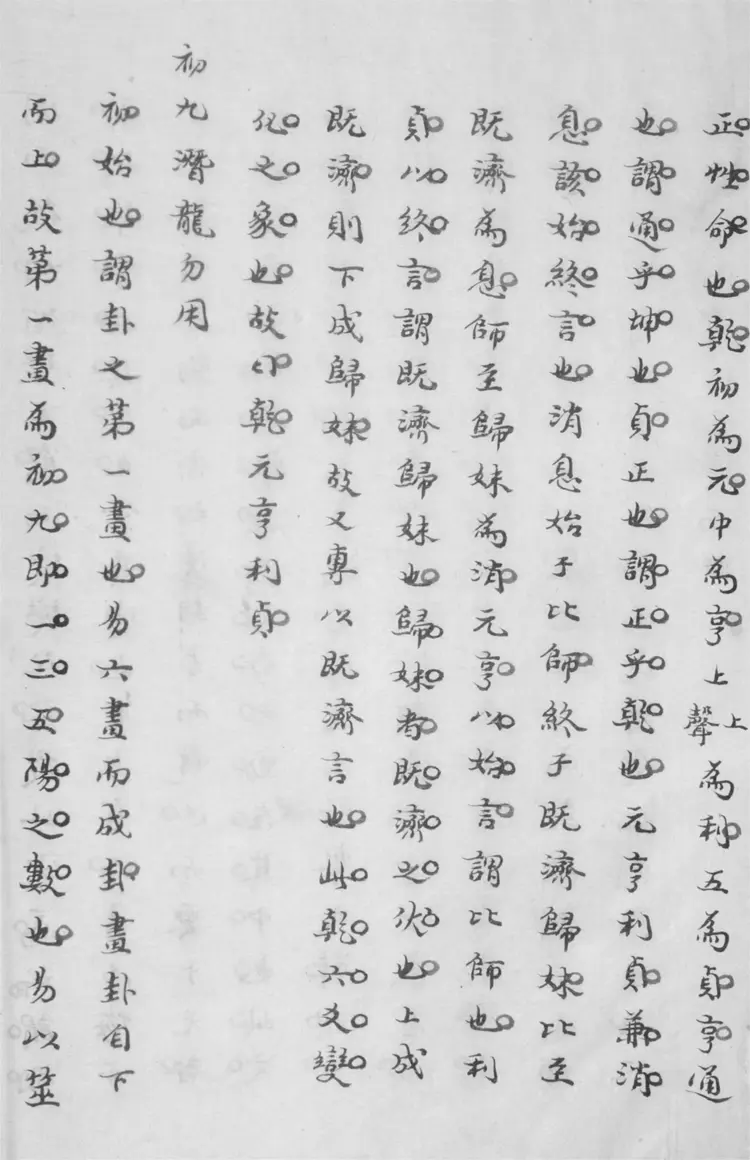 正性命也乾初為元中為亨上上聲為利五為貞亨通
也謂通乎坤也貞正也謂正乎乾也元亨利貞兼消
息該始終言也消息始于比師終于既濟歸妹比至
既濟為息師至歸妹為消元亨以始言謂比師也利
貞以終言謂既濟歸妹也歸妹者既濟之伏也上成
既濟則下成歸妹故又專以既濟言也此乾六爻變
化之象也故曰乾元亨利貞
初九潛龍勿用
初始也謂卦之第一畫也易六畫而成卦畫卦自下
而上故第一畫為初九即一三五陽之數也易以筮